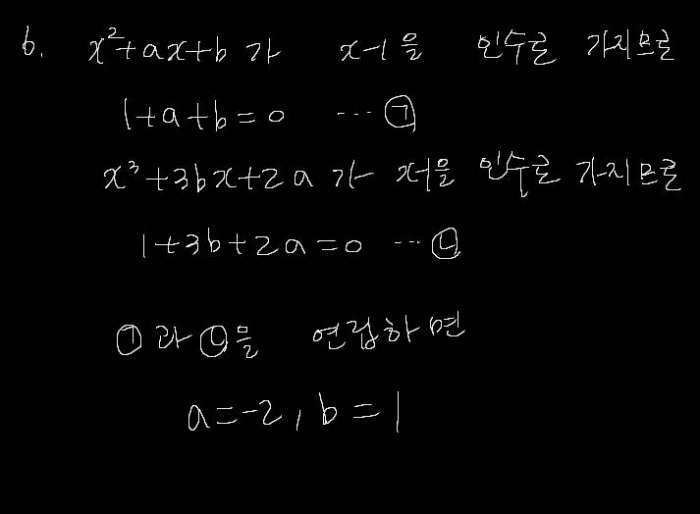 6. x²+ax+b 가 x-1을 인수로 가지므로
1+a+b=0 ... ㉠
x³+3bx+2a 가 x-1을 인수로 가지므로
1+3b+2a=0 ... ㉡
㉠과 ㉡을 연립하면
a=-2, b=1